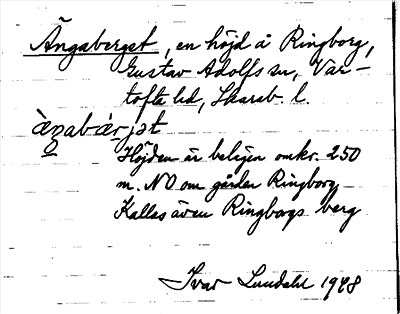 Ängaberget, en höjd å Ringborg,
Gustav Adolfs sn, Var-
tofta hd, Skarab. l.
àŋabær̀jət
Höjden är belägen omkr. 250
m. NO om gården Ringborg
Kallas även Ringborgs berg
Ivar Lundahl 1948